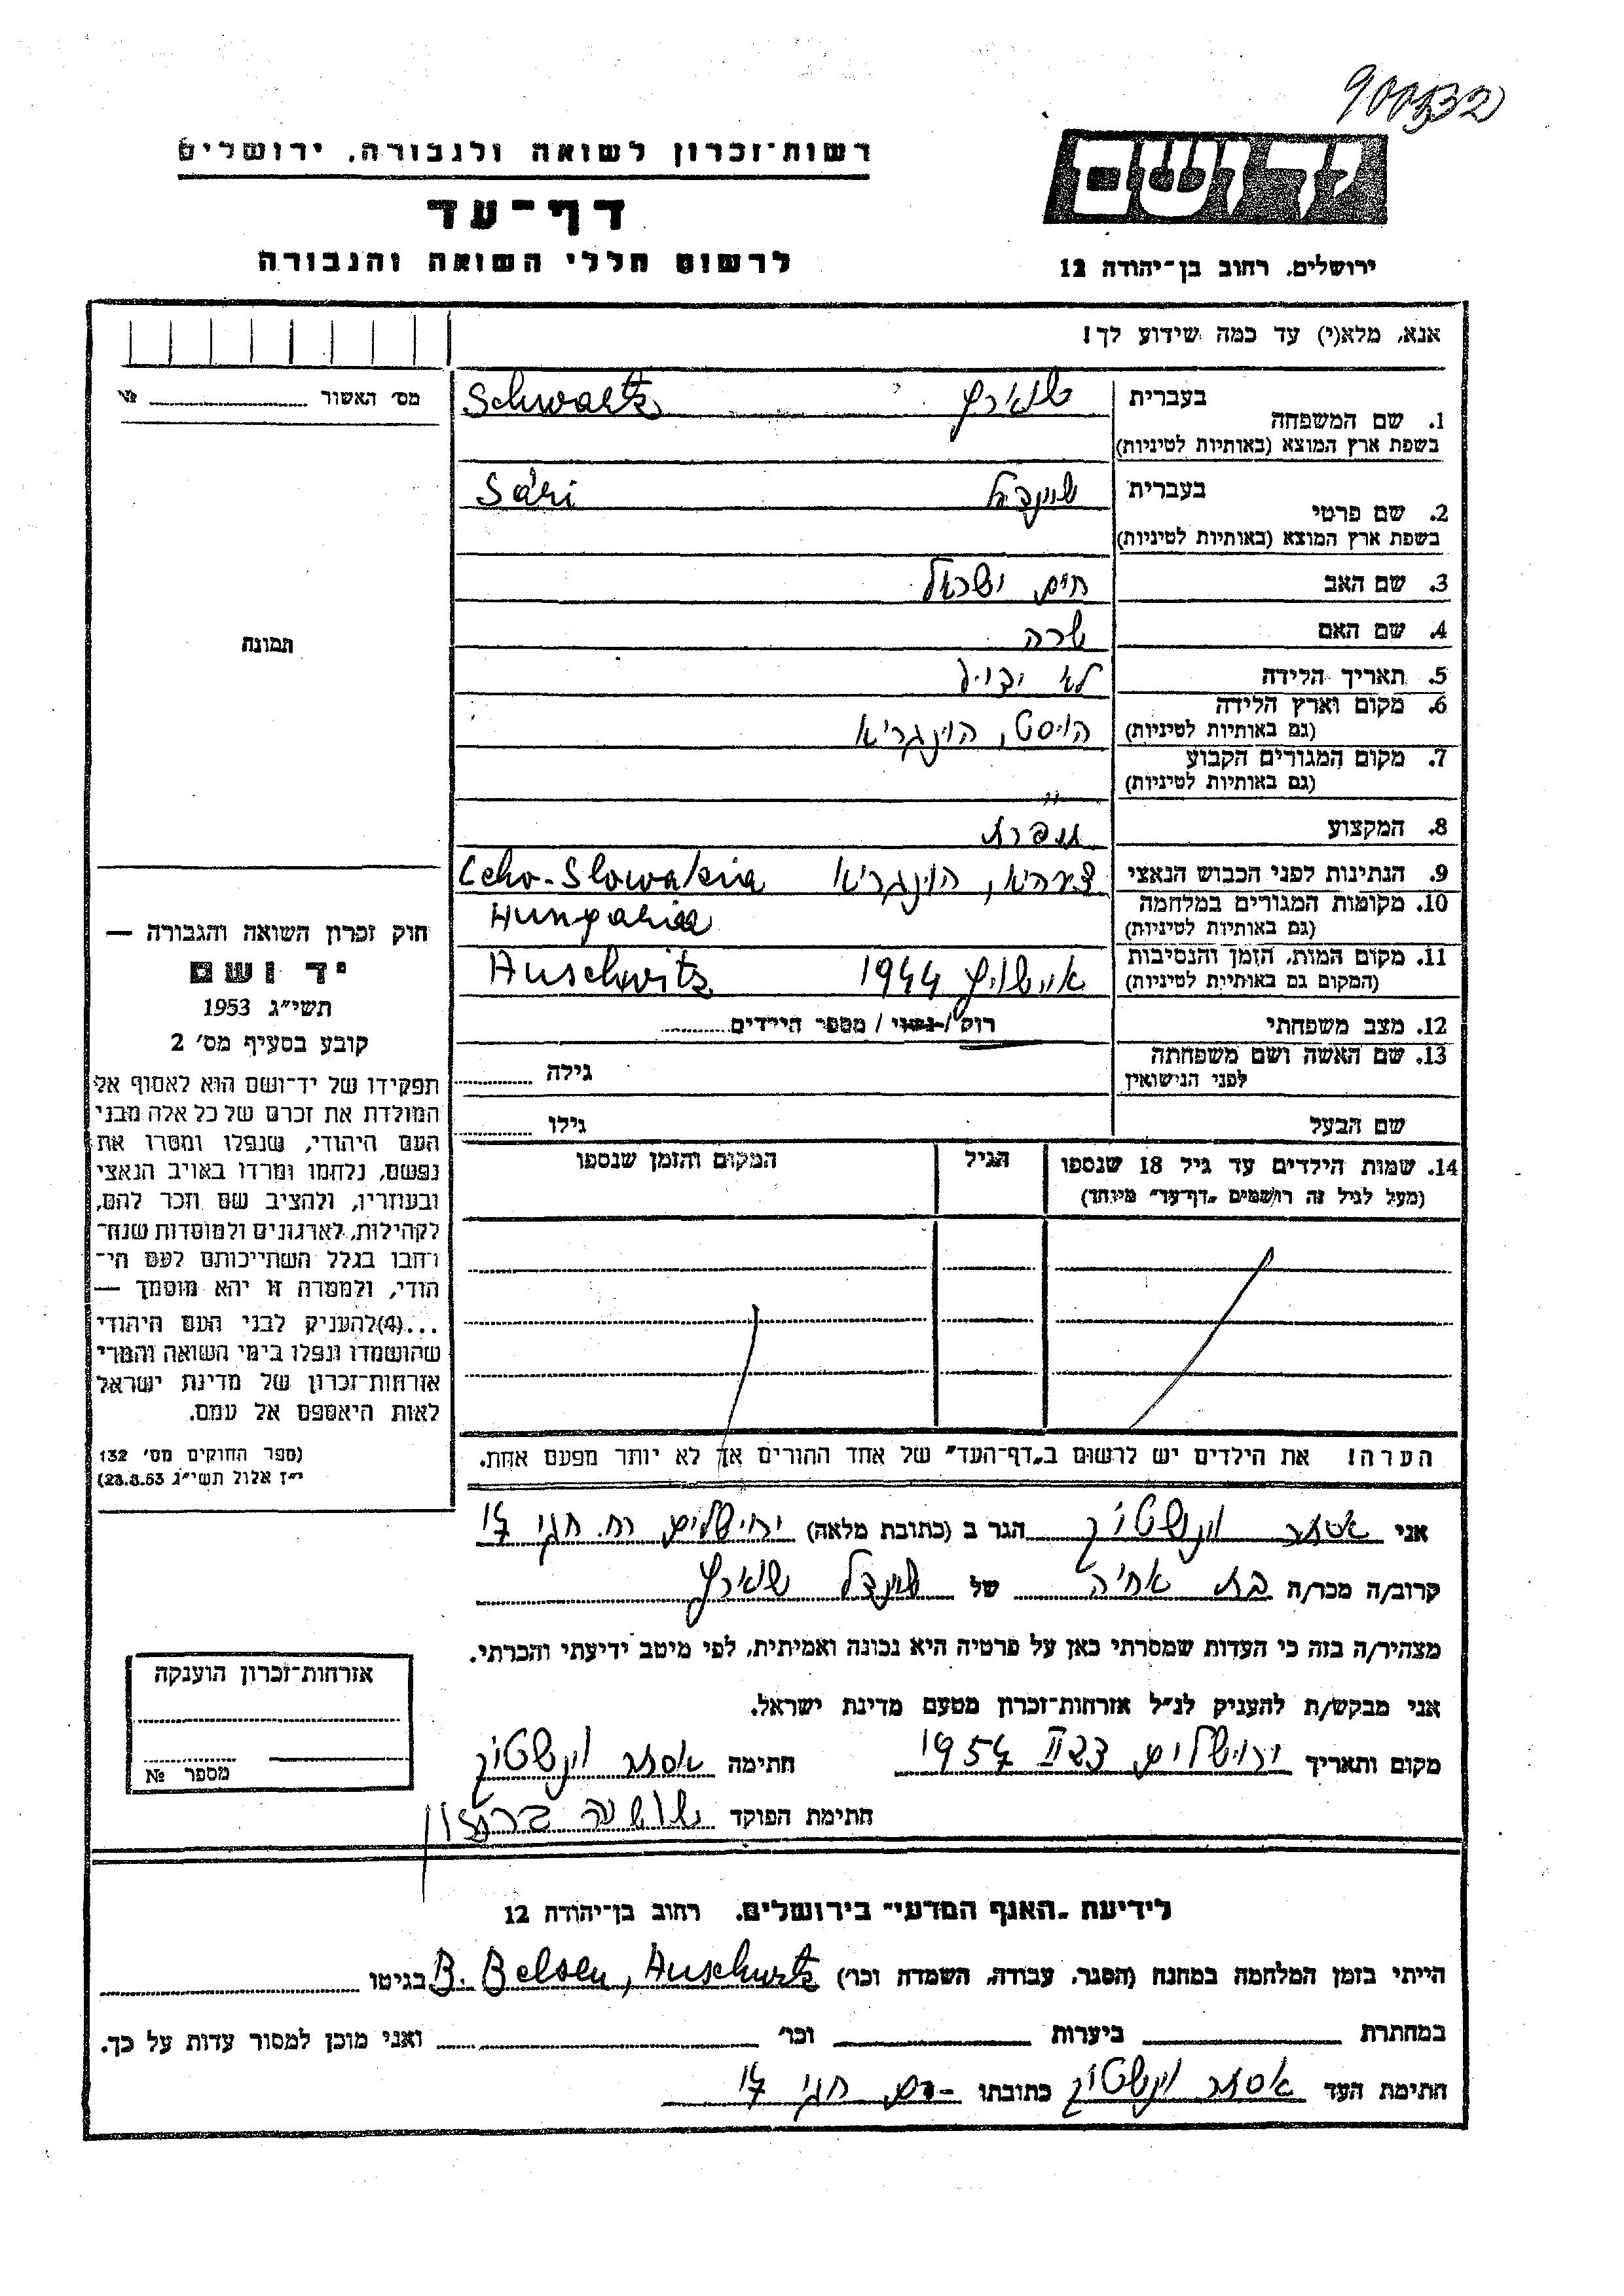 900532
רשות־זכרון לשואה ולגבורה, ירושלים
דף־עד
לרשום חללי השואה והגבורה
יד ושם
ירושלים, רחוב בן־יהודה 12
אנא, מלא(י) עד כמה שידוע לך!
מס׳ האשור № 
1. שם המשפחה בעברית שווארץ Schwartz
בשפת ארץ המוצא (באותיות לטיניות)
2. שם פרטי בעברית שיינדל Sári
בשפת ארץ המוצא (באותיות לטיניות)
3. שם האב חיים ישראל
4. שם האם שרה
5. תאריך הלידה לא ידוע
6. מקום וארץ הלידה הויסט, הונגריא
(גם באותיות לטיניות)
7. מקום המגורים הקבוע "
(גם באותיות לטיניות)
8. המקצוע תופרת
9. הנתינות לפני הכבוש הנאצי הונגריא Ceho-Slowakia
10. מקומות המגורים במלחמה Hungaria
(גם באותיות לטיניות)
11. מקום המות, הזמן והנסיבות אוישויץ 1944 Auschwitz
(המקום גם באותיות לטיניות)
12. מצב משפחתי רוק / נשוי / מספר הילדים
13. שם האשה ושם משפחתה גילה
לפני הנישואין
שם הבעל גילו
14. שמות הילדים עד גיל 18 שנספו הגיל המקום והזמן שנספו
(מעל לגיל זה רושמים „דף־עד״ מיוחד)
הערה! את הילדים יש לרשום ב„דף־העד״ של אחד ההורים אך לא יותר מפעם אחת.
תמונה
חוק זכרון השואה והגבורה —
יד ושם
תשי״ג 1953
קובע בסעיף מס׳ 2
תפקידו של יד־ושם הוא לאסוף אל
המולדת את זכרם של כל אלה מבני
העם היהודי, שנפלו ומסרו את
נפשם, נלחמו ומרדו באויב הנאצי
ובעוזריו, ולהציב שם וזכר להם,
לקהילות, לארגונים ולמוסדות שנח־
רחבו בגלל השתייכותם לעם הי־
הודי, ולמטרה זו יהא מוסמך —
...(4)להעניק לבני העם היהודי
שהושמדו ונפלו בימי השואה והמרי
אזרחות־זכרון של מדינת ישראל
לאות היאספם אל עמם.
(ספר החוקים מס׳ 132
י״ז אלול תשי״ג 28.8.53)
אני אסתר וינשטוק הגר ב (כתובת מלאה) ירושלים רח. חגי 17
קרוב/ה מכר/ה בת אחיה של שיינדל שווארץ
מצהיר/ה בזה כי העדות שמסרתי כאן על פרטיה היא נכונה ואמיתית, לפי מיטב ידיעתי והכרתי.
אני מבקש/ת להעניק לנ״ל אזרחות־זכרון מטעם מדינת ישראל.
מקום ותאריך ירושלים II 1957 חתימה אסתר וינשטוק
חתימת הפוקד שושנה
אזרחות־זכרון הוענקה
מספר №
לידיעת „האגף המדעי״ בירושלים, רחוב בן־יהודה 12
הייתי בזמן המלחמה במחנה (הסגר, עבודה, השמדה וכו׳) B. Belsen, Auschwitz בגיטו
במחתרת ביערות וכו׳ ואני מוכן למסור עדות על כך.
חתימת העד אסתר וינשטוק כתובתו חגי 17